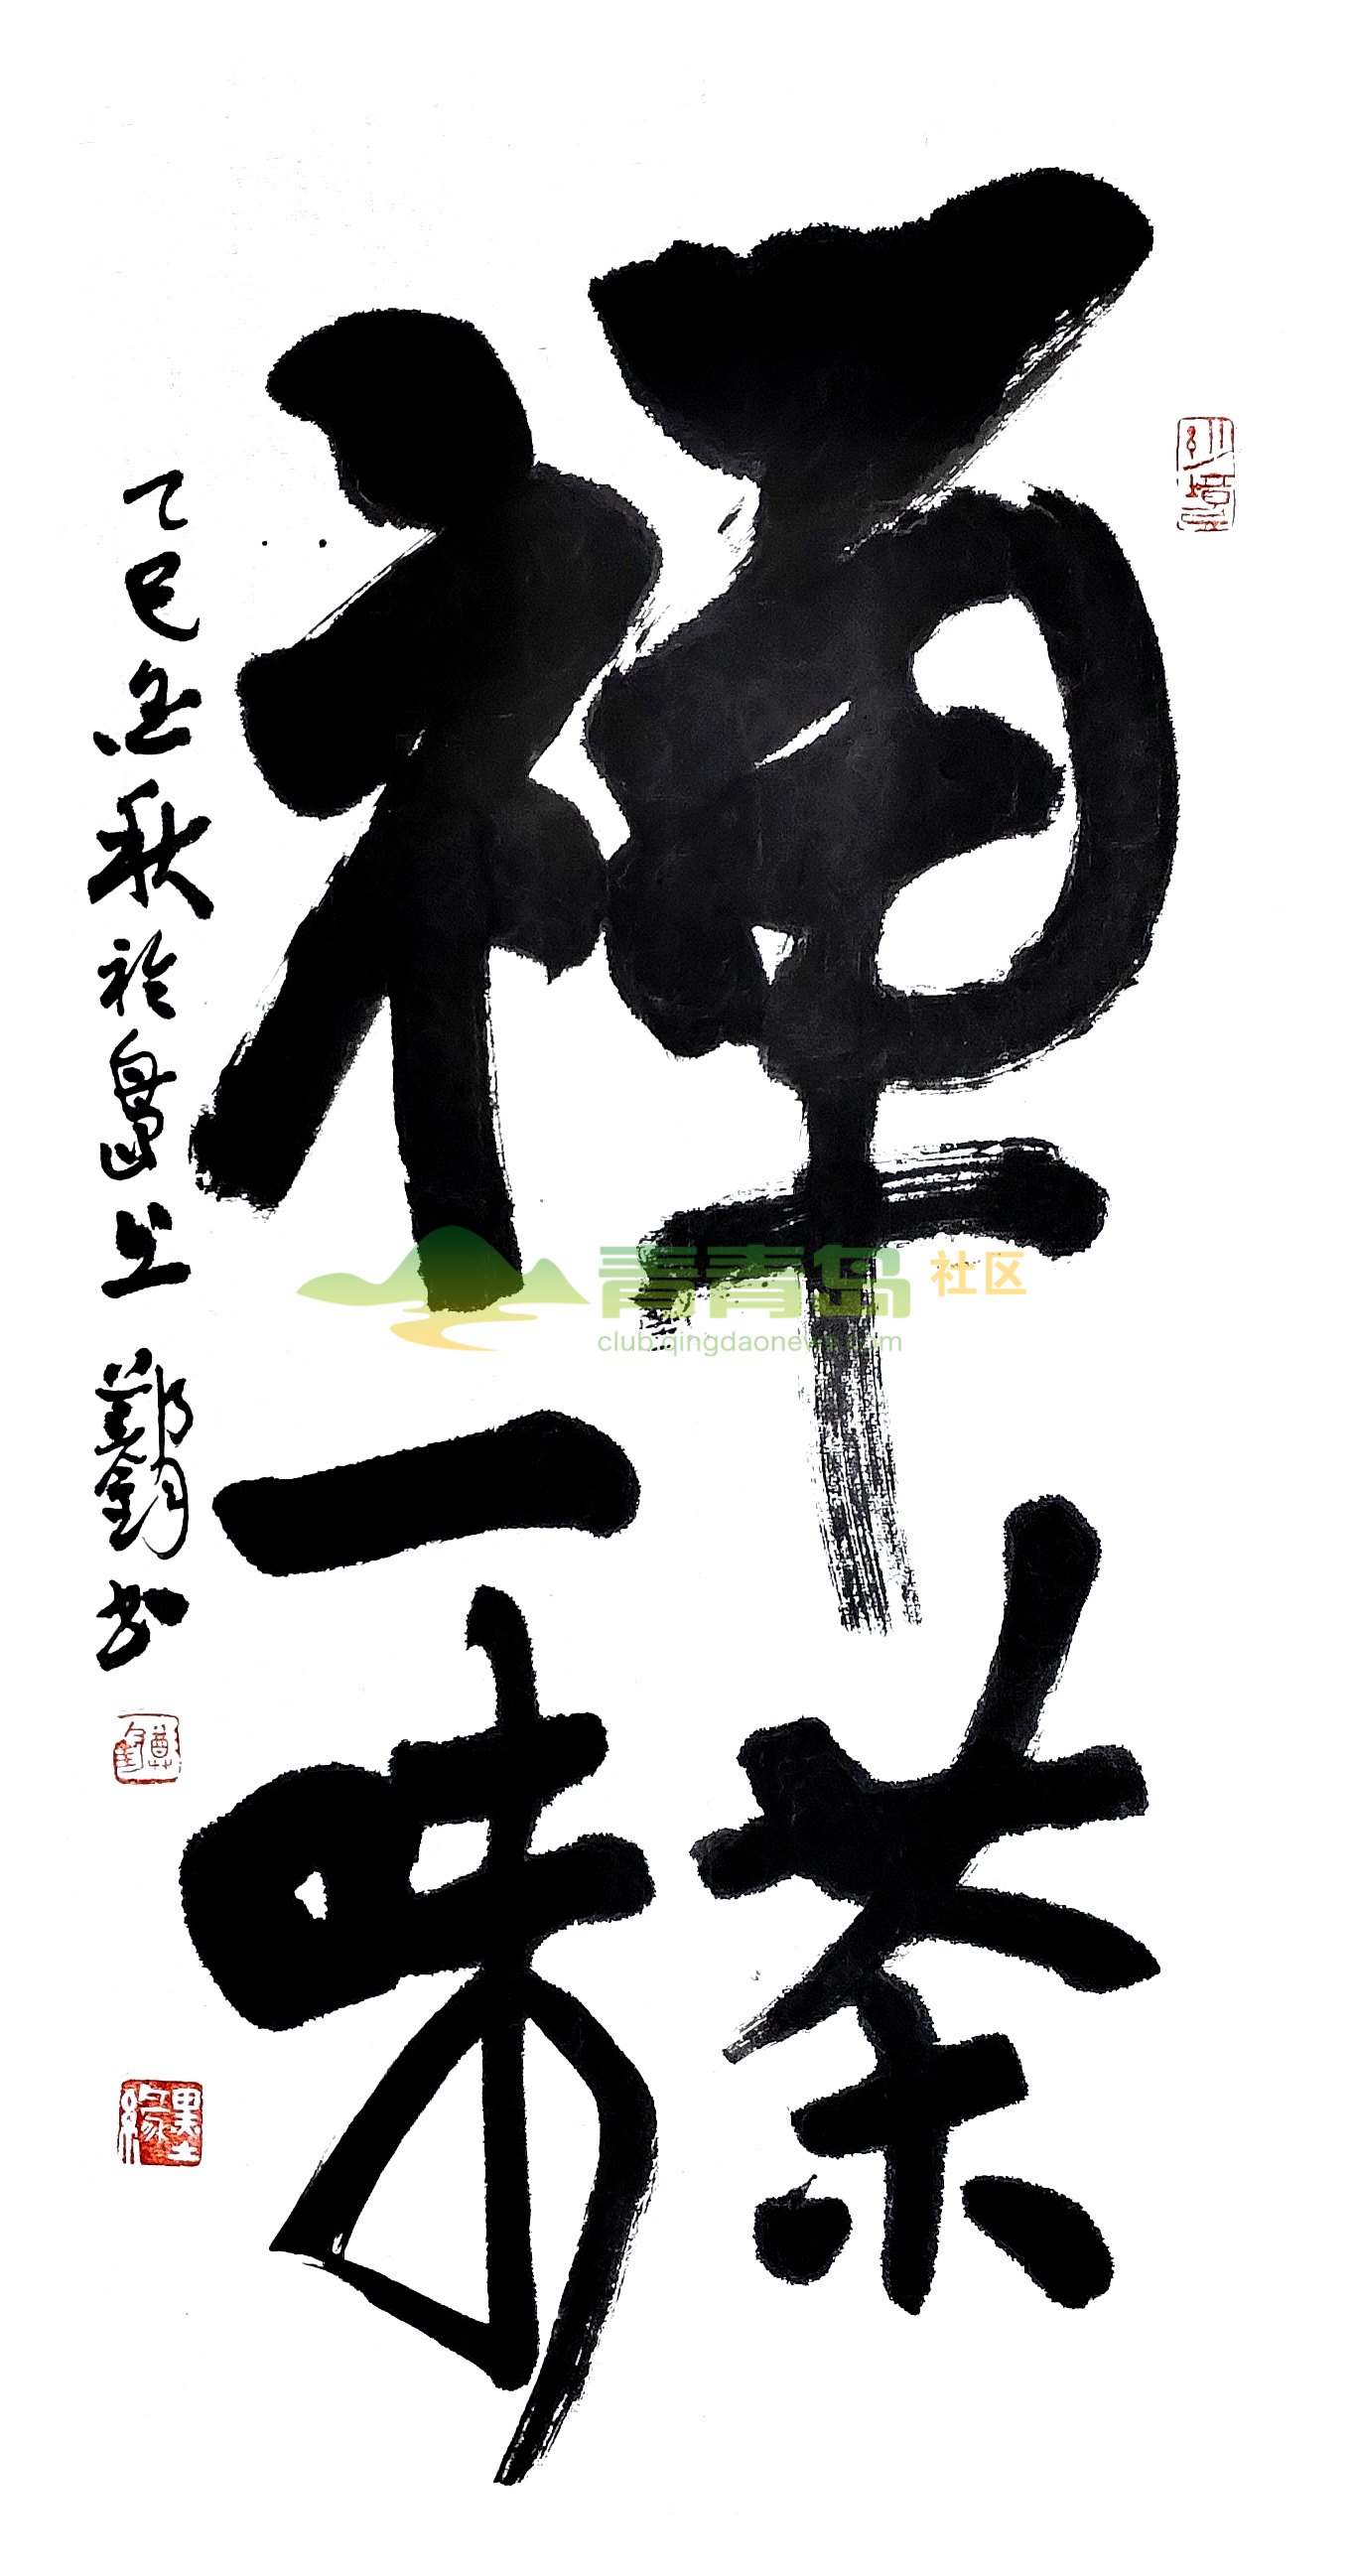 禪茶
一味
乙巳秋於島上鄭書
墨緣
青青岛 社区
club.qingdaonews.com